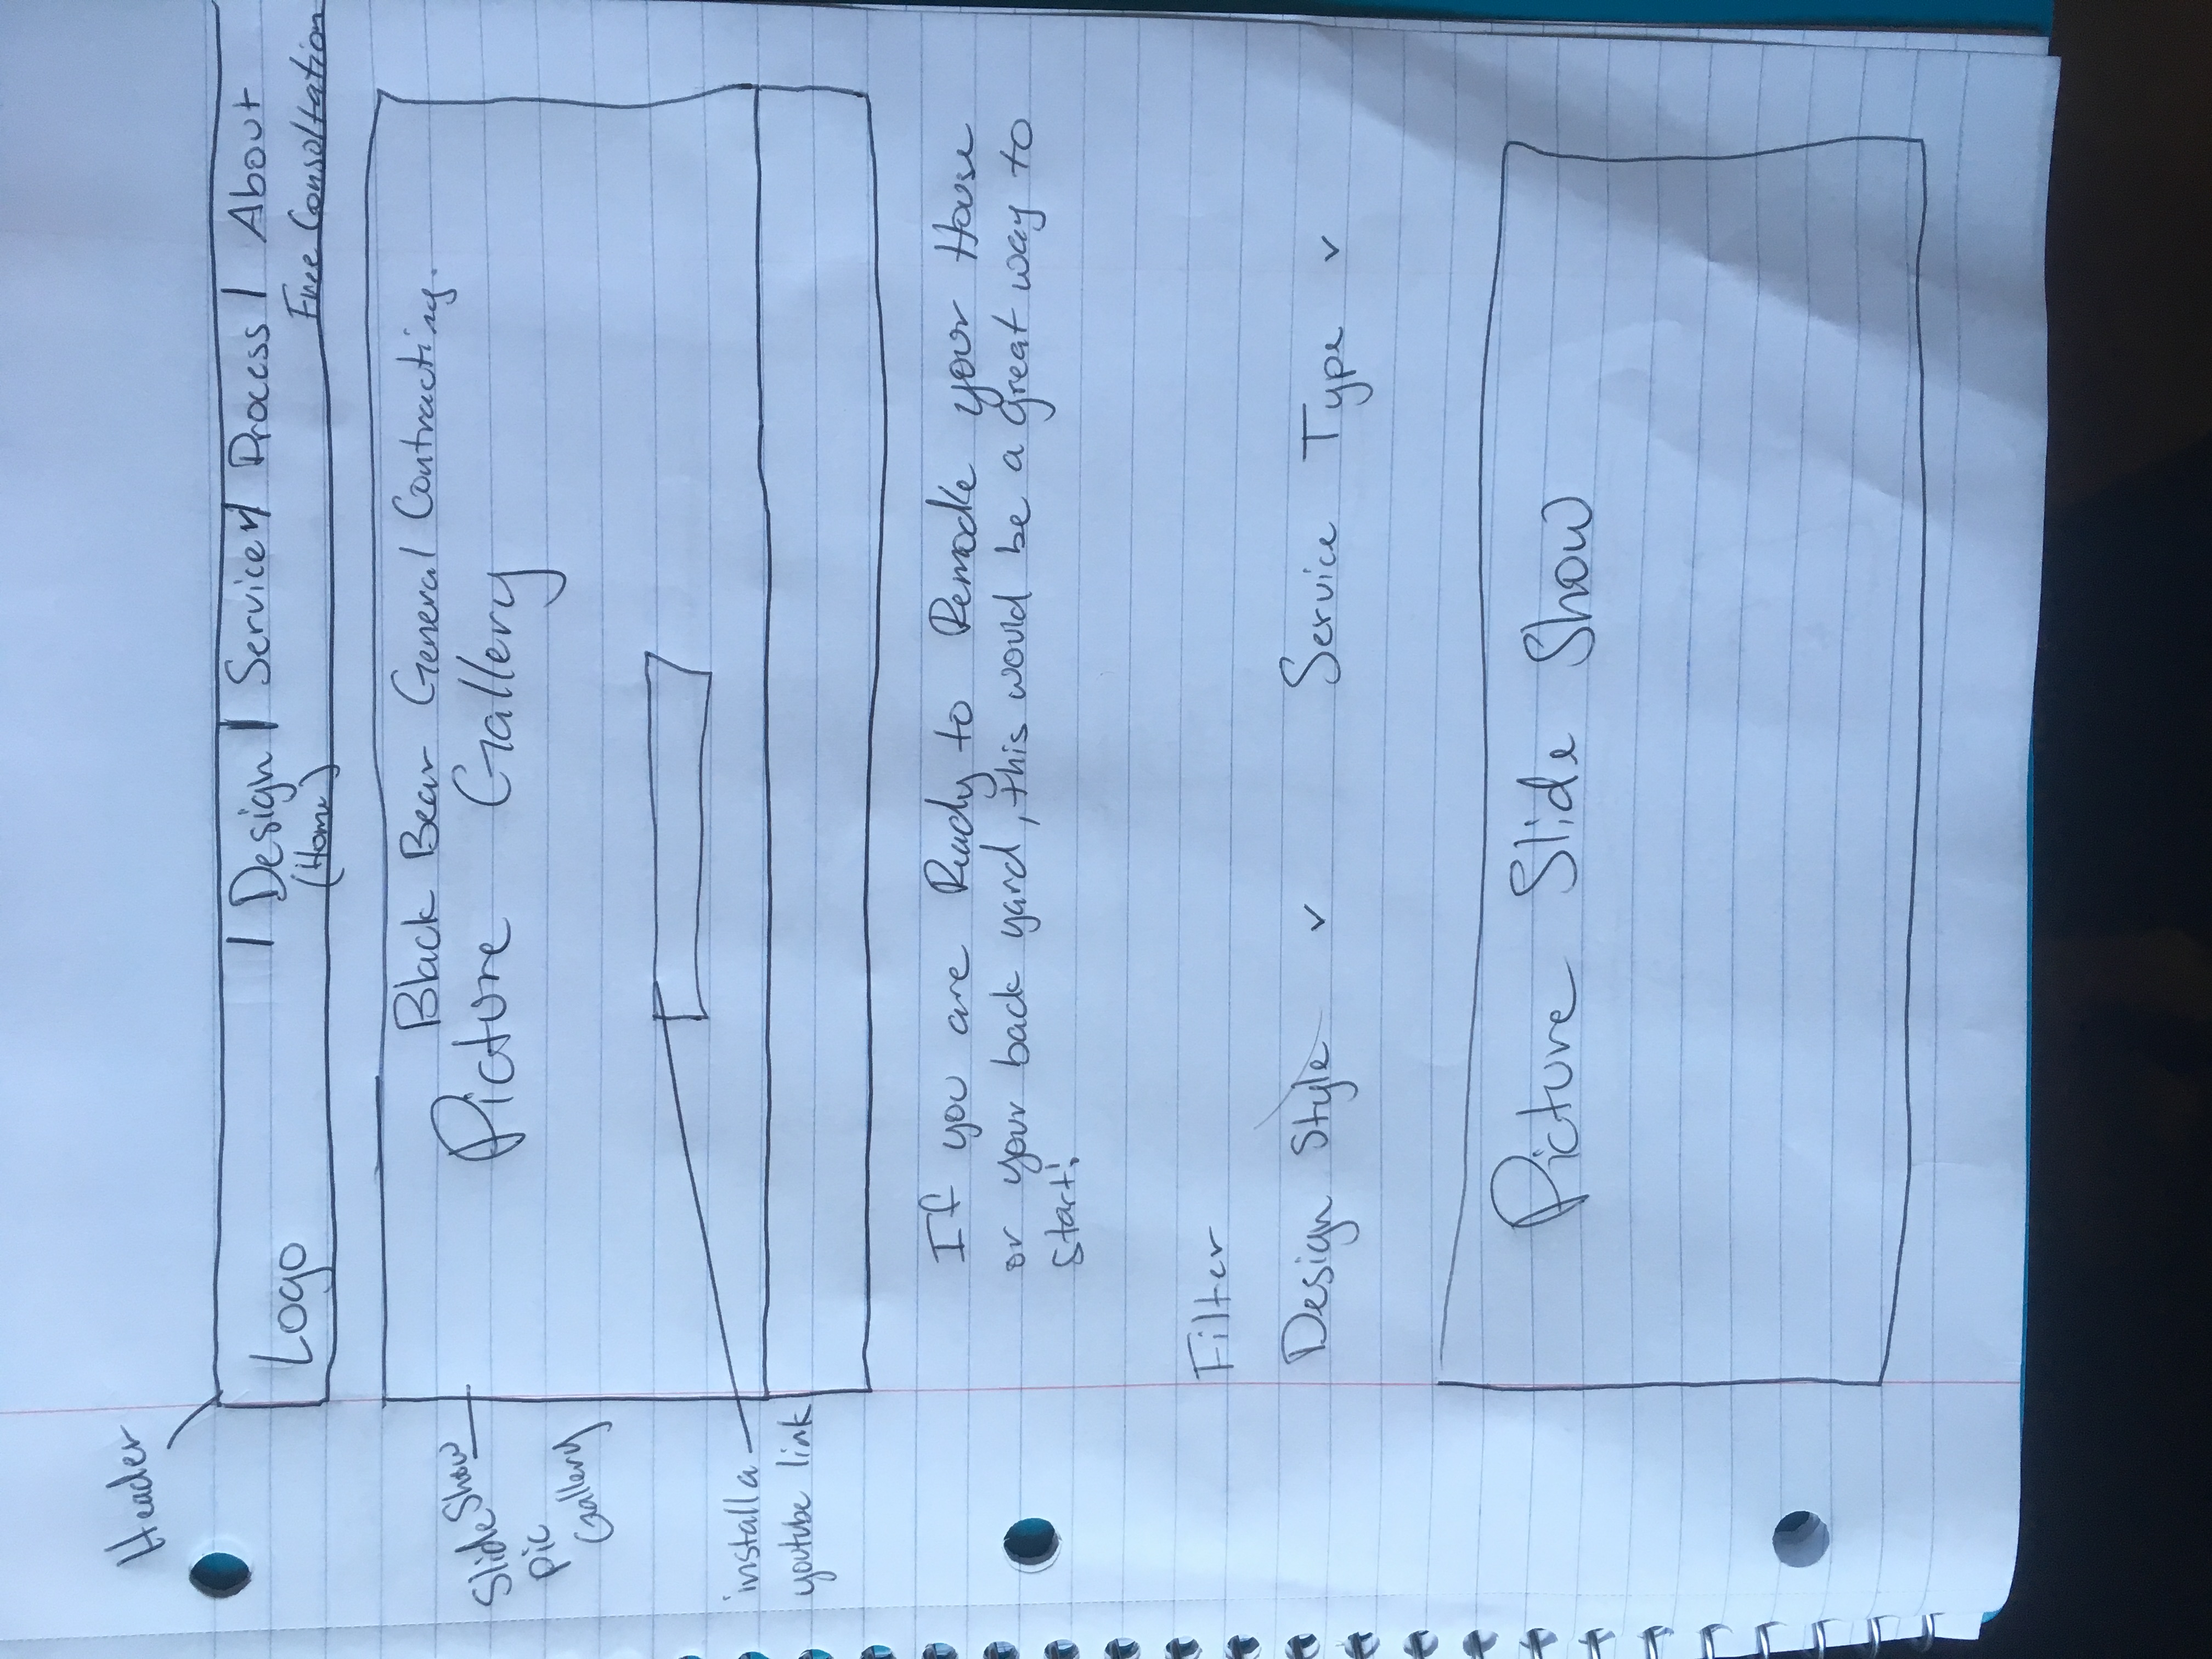 Header
Logo
| Design | Service | Process | About
(Home)
Free Consoltation
Black Bear General Contracting.
Picture Gallery
SlideShow
pic
Gallery
install a
youtube link
If you are Ready to Remodle your House
or your back yard, this would be a great way to
start!
Filter
Design Style v Service Type v
Picture Slide Show